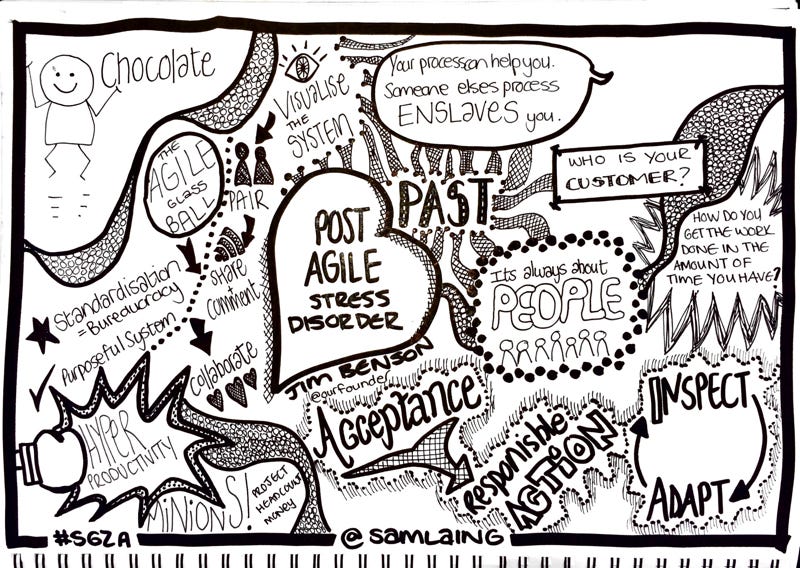 Chocolate
VISUALISE
THE
SYSTEM
Your process can help you.
Someone elses process
ENSLAVES you.
THE
AGILE
GLASS
BALL
PAIR
PAST
WHO IS YOUR
CUSTOMER?
HOW DO YOU
GET THE WORK
DONE IN THE
AMOUNT OF
TIME YOU HAVE?
POST
AGILE
STRESS
DISORDER
Share
comment
Its always about
PEOPLE
Standardisation
= Bureaucracy
Purposeful System
Collaborate
JIM BENSON
@ourfounder
Acceptance
responisble
ACTION
INSPECT
ADAPT
HYPER
PRODUCTIVITY
MINIONS!
PROJECT
HEADCOUNT
MONEY
#SGZA
@SAMLAING